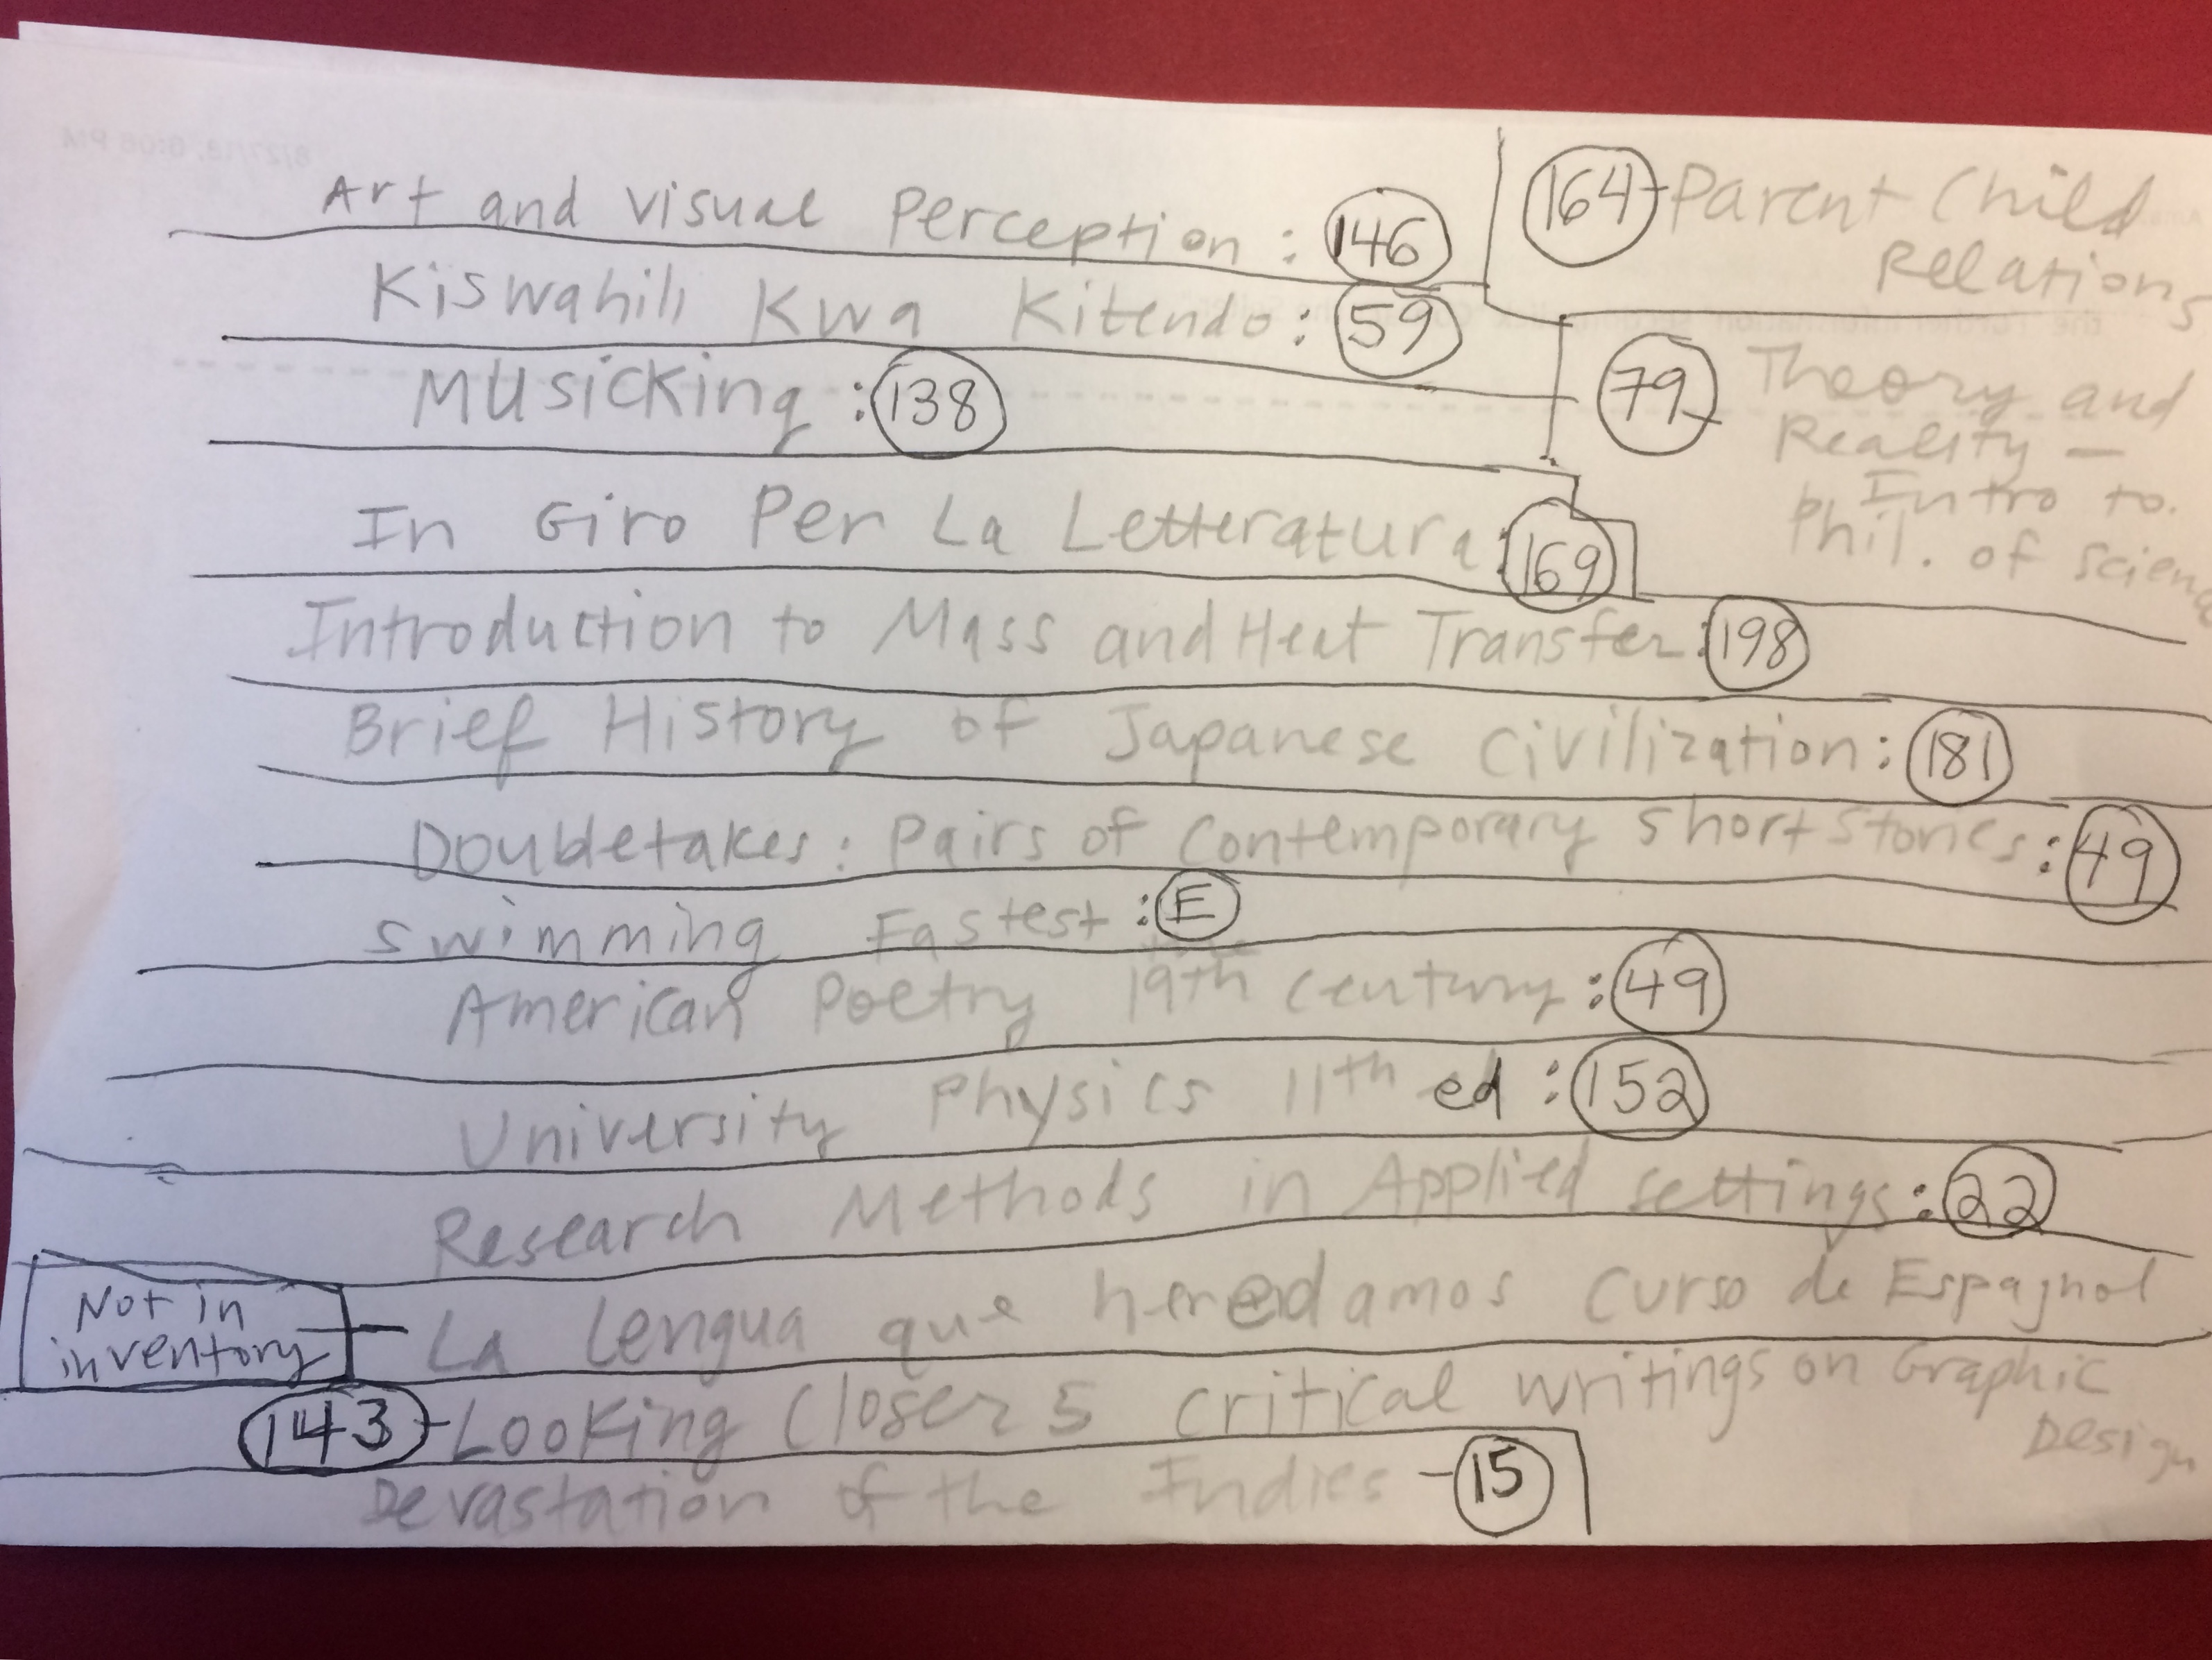 Art and visual Perception : 146
Kiswahili Kwa Kitendo : 59
Musicking : 138
In Giro Per La Letteratura : 169
Introduction to Mass and Heat Transfer : 198
Brief History of Japanese Civilization : 181
Doubletakes : Pairs of Contemporary Short Stories : 49
Swimming Fastest : E
American Poetry 19th Century : 49
University Physics 11th ed : 152
Research Methods in Applied settings : 22
Not in
inventory
— La Lengua que heredamos Curso de Espagnol
143 - Looking Closer 5 critical writings on Graphic
Design
Devastation of the Indies - 15
164 - Parent Child
Relations
79 Theory and
Reality —
Intro to.
Phil. of Scienc